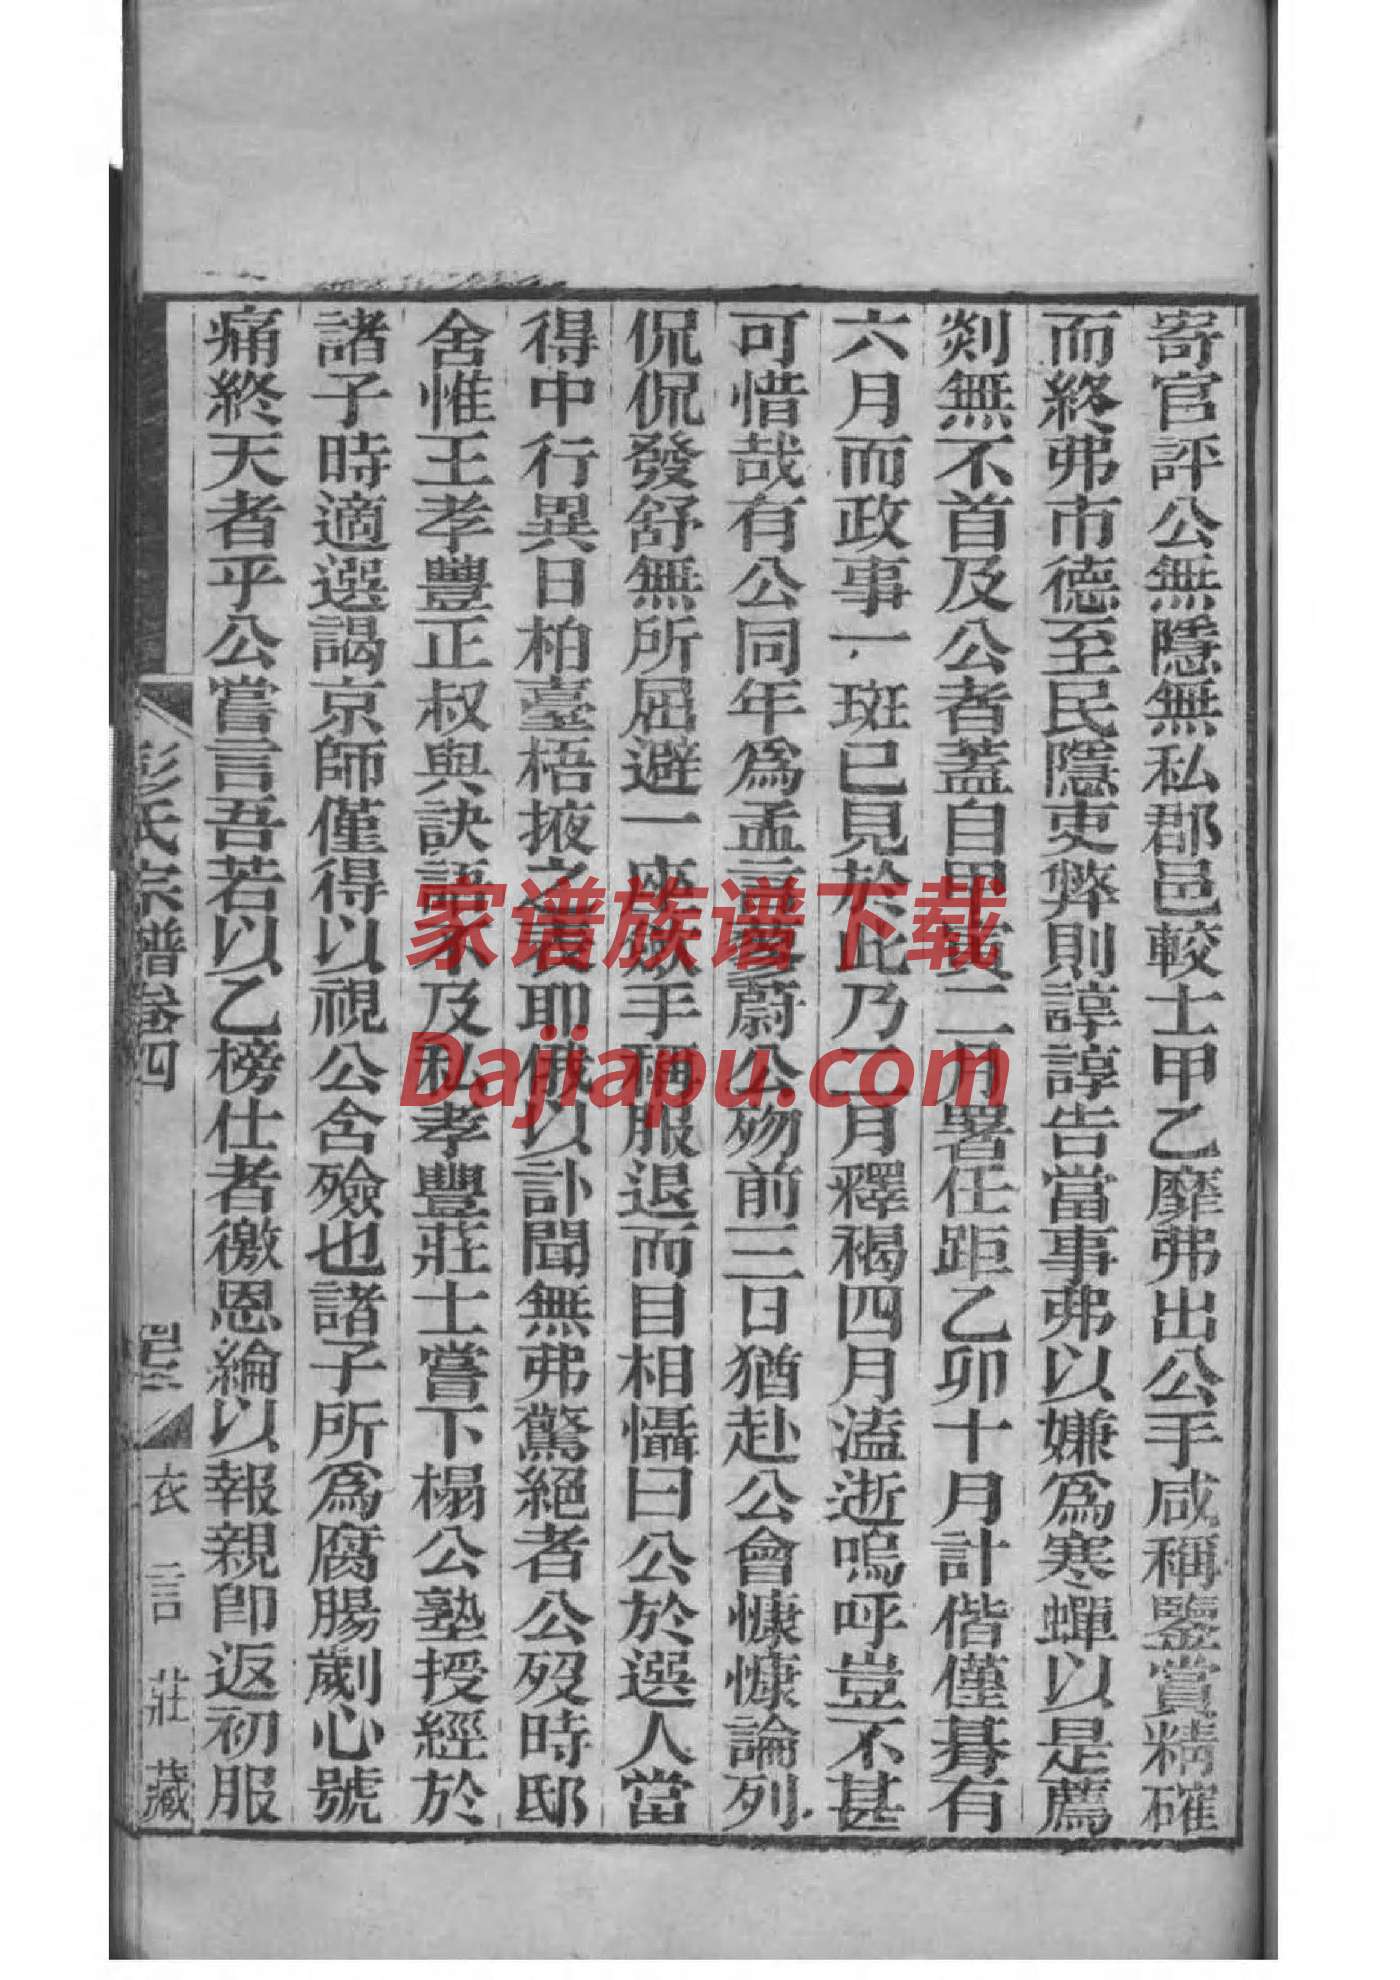 寄官評公無隱無私郡邑較士甲乙靡弗出公手咸稱鑒賞精確
而終弗市德至民隱吏弊則諄諄告當事弗以嫌爲寒蟬以是薦
剡無不首及公者蓋自甲寅二月署任距乙卯十月計偕僅朞有
六月而政事一斑已見於此乃二月釋褐四月溘逝嗚呼豈不甚
可惜哉有公同年爲孟言蔚公歿前三日猶赴公會慷慷論列
侃侃發舒無所屈避一座斂手稱服退而目相懾曰公於選人當
得中行異日柏臺梧掖之表耶俄以訃聞無弗驚絕者公歿時邸
舍惟王孝豐正叔與訣語不及私孝豐莊士嘗下榻公塾授經於
諸子時適選謁京師僅得以視公含殮也諸子所爲腐腸劌心號
痛終天者乎公嘗言吾若以乙榜仕者徼恩綸以報親即返初服
彭氏宗譜卷四
衣言莊藏
家谱族谱下载
Dajiapu.com